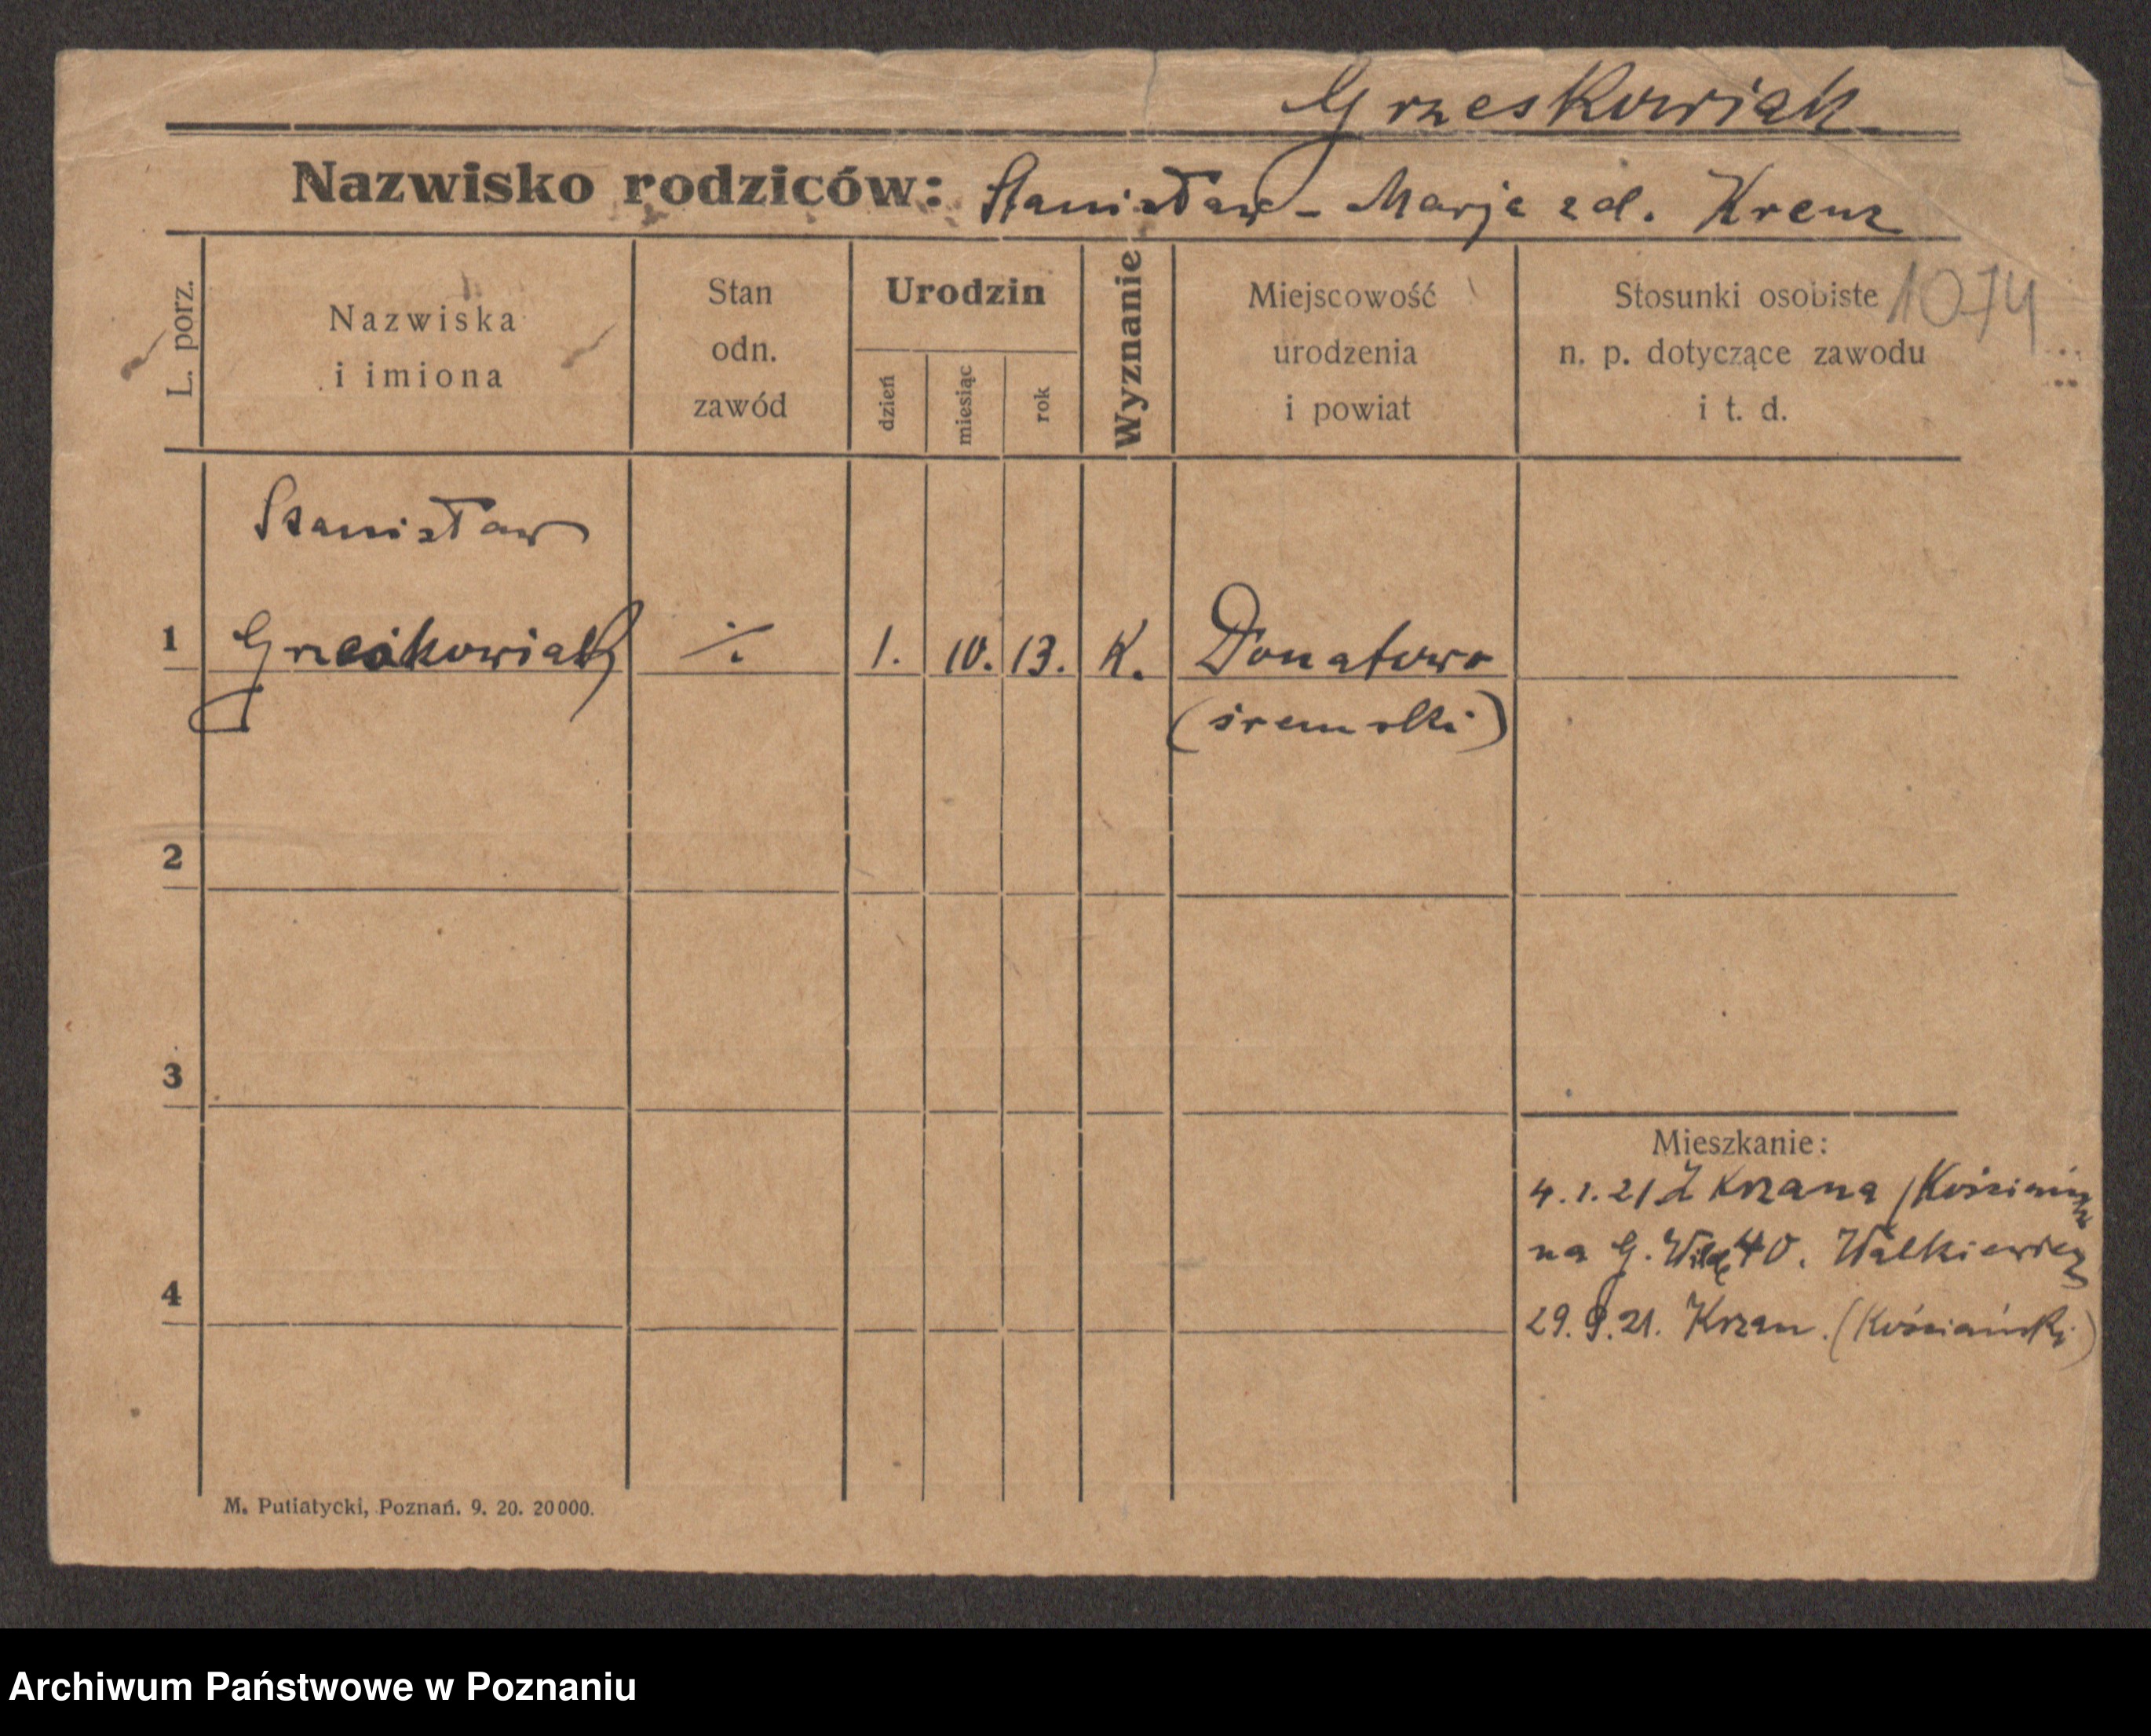 Grzeskowiak
Nazwisko rodziców: Stanisław - Marja zd. Krenz
L. porz.
Nazwiska
i imiona
Stan
odn.
zawód
Urodzin
dzień
miesiąc
rok
Wyznanie
Miejscowość
urodzenia
i powiat
Stosunki osobiste 1074
n. p. dotyczące zawodu
i t. d.
Stanisław
1 Grześkowiak ·/. 1. 10. 13. K. Donatowo
(śremski)
2
3
Mieszkanie:
4. 1. 21 Z Krzana
na G. Wildę 40. Walkiewicz
4
29. 9. 21. Krzan. (Kościański)
M. Putiatycki, Poznań. 9. 20. 20000.
Archiwum Państwowe w Poznaniu